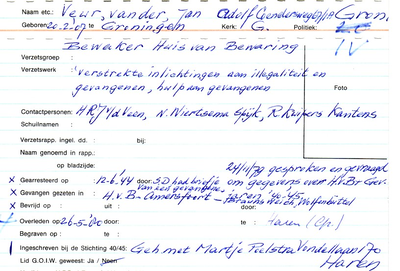 Naam etc.: Veur, van der, Jan Adolf Coendersweg Gron.
Geboren: 20.2.07 te Groningen Kerk: G. Politiek:
IV
Bewaker Huis van Bewaring
Verzetsgroep :
Verzetswerk : verstrekte inlichtingen aan illegaliteit en
gevangenen, hulp aan gevangenen
Foto
Contactpersonen: H.R.J. v.d. Veen, N. Wiertsema Spijk, R. Kuipers Kantens
Schuilnaam :
Verzetsrapp. ingel. dd. : bij:
Naam genoemd in rapp.:
op bladzijde: 24/11/79 gesproken en gevraagd
x Gearresteerd op : 12-6-'44 door: SD had briefje om gegevens over H.v.B. Gev.
van een gevangene jaren '40-'45
x Gevangen gezeten in : H.v.B. - Amersfoort - Wolfenbüttel
x Bevrijd op : uit : door:
Overleden op : 26-5- te : Haren (Gr.)
Begraven op : te :
Ingeschreven bij de Stichting 40/45: Geh. met Martje Poelstra Vondellaan 70
Lid G.O.I.W. geweest Ja / Neen Haren